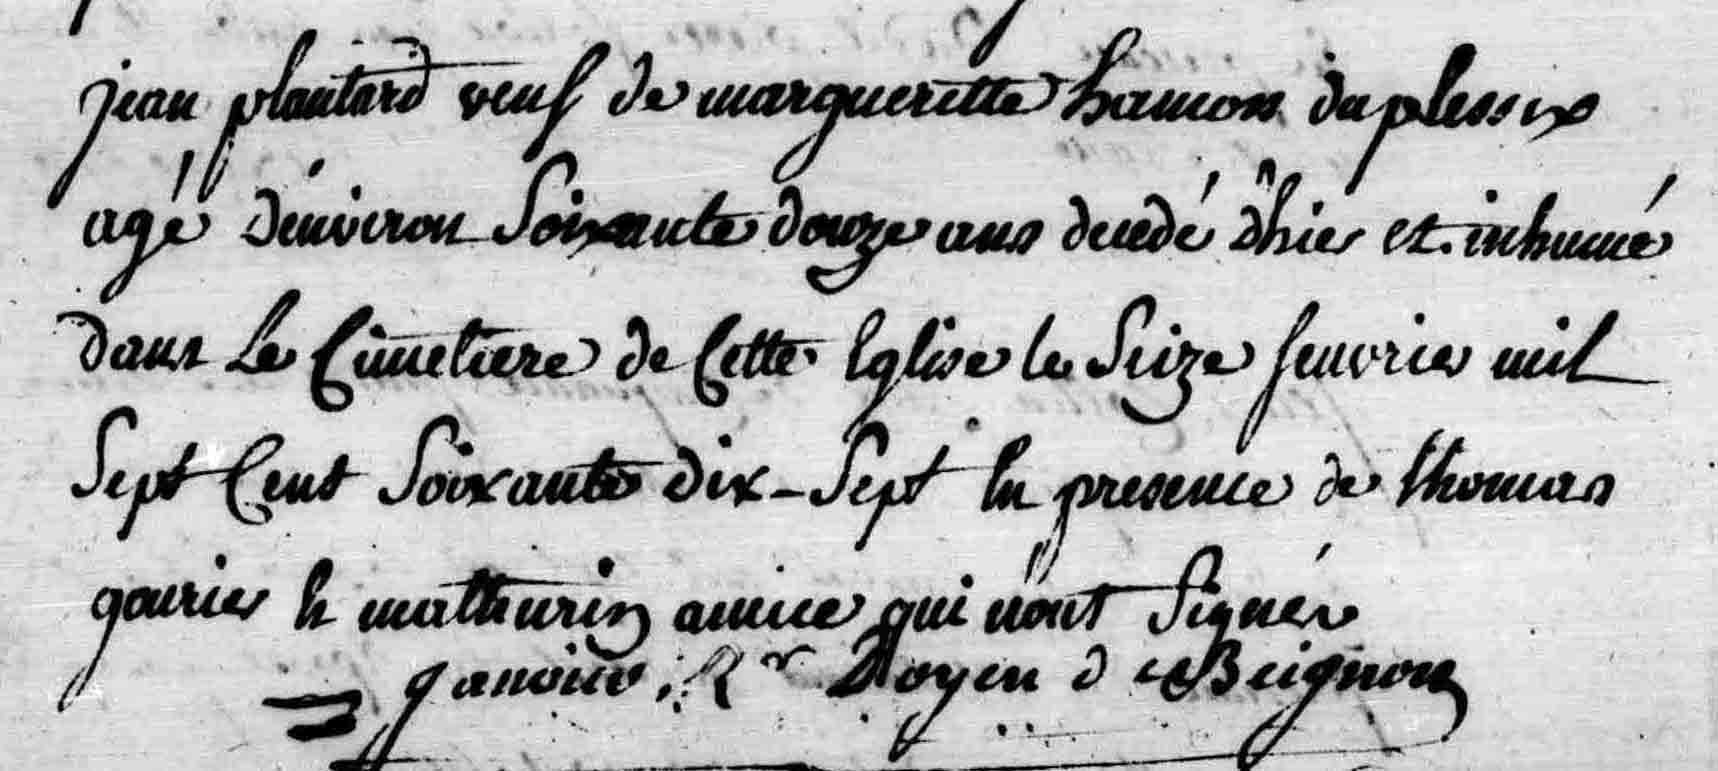 jean plantard veuf de margueritte hamon duplessix
agé d'environ Soixante douze ans decedé d'hier et inhumé
dans Le Cimetiere de Cette Eglise le Seize feuvrier mil
Sept Cent Soixante dix-Sept En presence de thomas
gourier Et mathurin amice qui n'ont Signés
R.r Doyen de Beignon